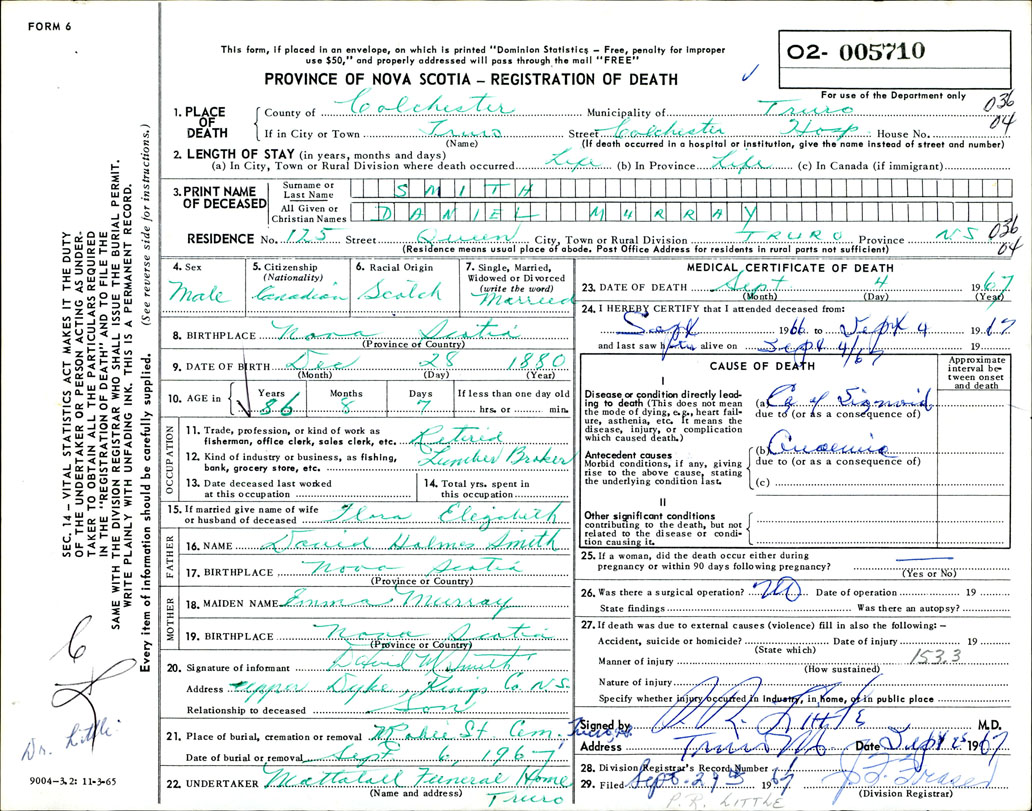 FORM 6
This form, if placed in an envelope, on which is printed "Dominion Statistics – Free, penalty for improper
use $50," and properly addressed will pass through the mail "FREE"
O2- 005710
PROVINCE OF NOVA SCOTIA – REGISTRATION OF DEATH
For use of the Department only
036
04
1. PLACE OF DEATH
County of Colchester Municipality of Truro
If in City or Town Truro Street Colchester Hosp House No.
(Name) (If death occurred in a hospital or institution, give the name instead of street and number)
2. LENGTH OF STAY (in years, months and days)
(a) In City, Town or Rural Division where death occurred Life (b) In Province Life (c) In Canada (if immigrant)
3. PRINT NAME OF DECEASED
Surname or Last Name SMITH
All Given or Christian Names DANIEL MURRAY
036
04
RESIDENCE No. 125 Street Queen City, Town or Rural Division TRURO Province NS
(Residence means usual place of abode. Post Office Address for residents in rural parts not sufficient)
4. Sex
Male
5. Citizenship
(Nationality)
Canadian
6. Racial Origin
Scotch
7. Single, Married,
Widowed or Divorced
(write the word)
Married
8. BIRTHPLACE Nova Scotia
(Province or Country)
9. DATE OF BIRTH Dec 28 1880
(Month) (Day) (Year)
10. AGE in
Years 86
Months 8
Days 7
If less than one day old
hrs. or min.
OCCUPATION
11. Trade, profession, or kind of work as
fisherman, office clerk, sales clerk, etc. Retired
12. Kind of industry or business, as fishing,
bank, grocery store, etc. Lumber Broker
13. Date deceased last worked
at this occupation
14. Total yrs. spent in
this occupation
15. If married give name of wife
or husband of deceased Flora Elizabeth
FATHER
16. NAME David Holmes Smith
17. BIRTHPLACE Nova Scotia
(Province or Country)
MOTHER
18. MAIDEN NAME Emma Murray
19. BIRTHPLACE Nova Scotia
(Province or Country)
20. Signature of informant David M Smith
Address Upper Dyke, Kings Co N.S.
Relationship to deceased Son
21. Place of burial, cremation or removal Robie St Cem, Truro, NS.
Date of burial or removal Sept 6, 1967
22. UNDERTAKER Mattatall Funeral Home
(Name and address) Truro
MEDICAL CERTIFICATE OF DEATH
23. DATE OF DEATH Sept 4 1967
(Month) (Day) (Year)
24. I HEREBY CERTIFY that I attended deceased from:
Sept 1966 to Sept 4 1967
and last saw him alive on Sept 4/67 19
CAUSE OF DEATH
Approximate
interval be-
tween onset
and death
I
Disease or condition directly lead-
ing to death (This does not mean
the mode of dying, e.g., heart fail-
ure, asthenia, etc. It means the
disease, injury, or complication
which caused death.)
(a) Ca of Sigmoid
due to (or as a consequence of)
Antecedent causes
Morbid conditions, if any, giving
rise to the above cause, stating
the underlying condition last.
(b) Anaemia
due to (or as a consequence of)
(c)
II
Other significant conditions
contributing to the death, but not
related to the disease or condi-
tion causing it.
25. If a woman, did the death occur either during
pregnancy or within 90 days following pregnancy?
(Yes or No)
26. Was there a surgical operation? NO Date of operation 19
State findings Was there an autopsy?
27. If death was due to external causes (violence) fill in also the following: –
Accident, suicide or homicide? Date of injury 19
(State which)
Manner of injury 153.3
(How sustained)
Nature of injury
Specify whether injury occurred in Industry, in Home, or in public place
Signed by P.R. Little M.D.
Address Truro NS Date Sept 5 1967
28. Division Registrar's Record Number
29. Filed Sept. 29th 1967
(Division Registrar)
P.R. LITTLE
SEC. 14 – VITAL STATISTICS ACT MAKES IT THE DUTY
OF THE UNDERTAKER OR PERSON ACTING AS UNDER-
TAKER TO OBTAIN ALL THE PARTICULARS REQUIRED
IN THE "REGISTRATION OF DEATH" AND TO FILE THE
SAME WITH THE DIVISION REGISTRAR WHO SHALL ISSUE THE BURIAL PERMIT.
WRITE PLAINLY WITH UNFADING INK. THIS IS A PERMANENT RECORD.
Every item of information should be carefully supplied. (See reverse side for instructions.)
Dr. Little
9004-3.2: 11-3-65